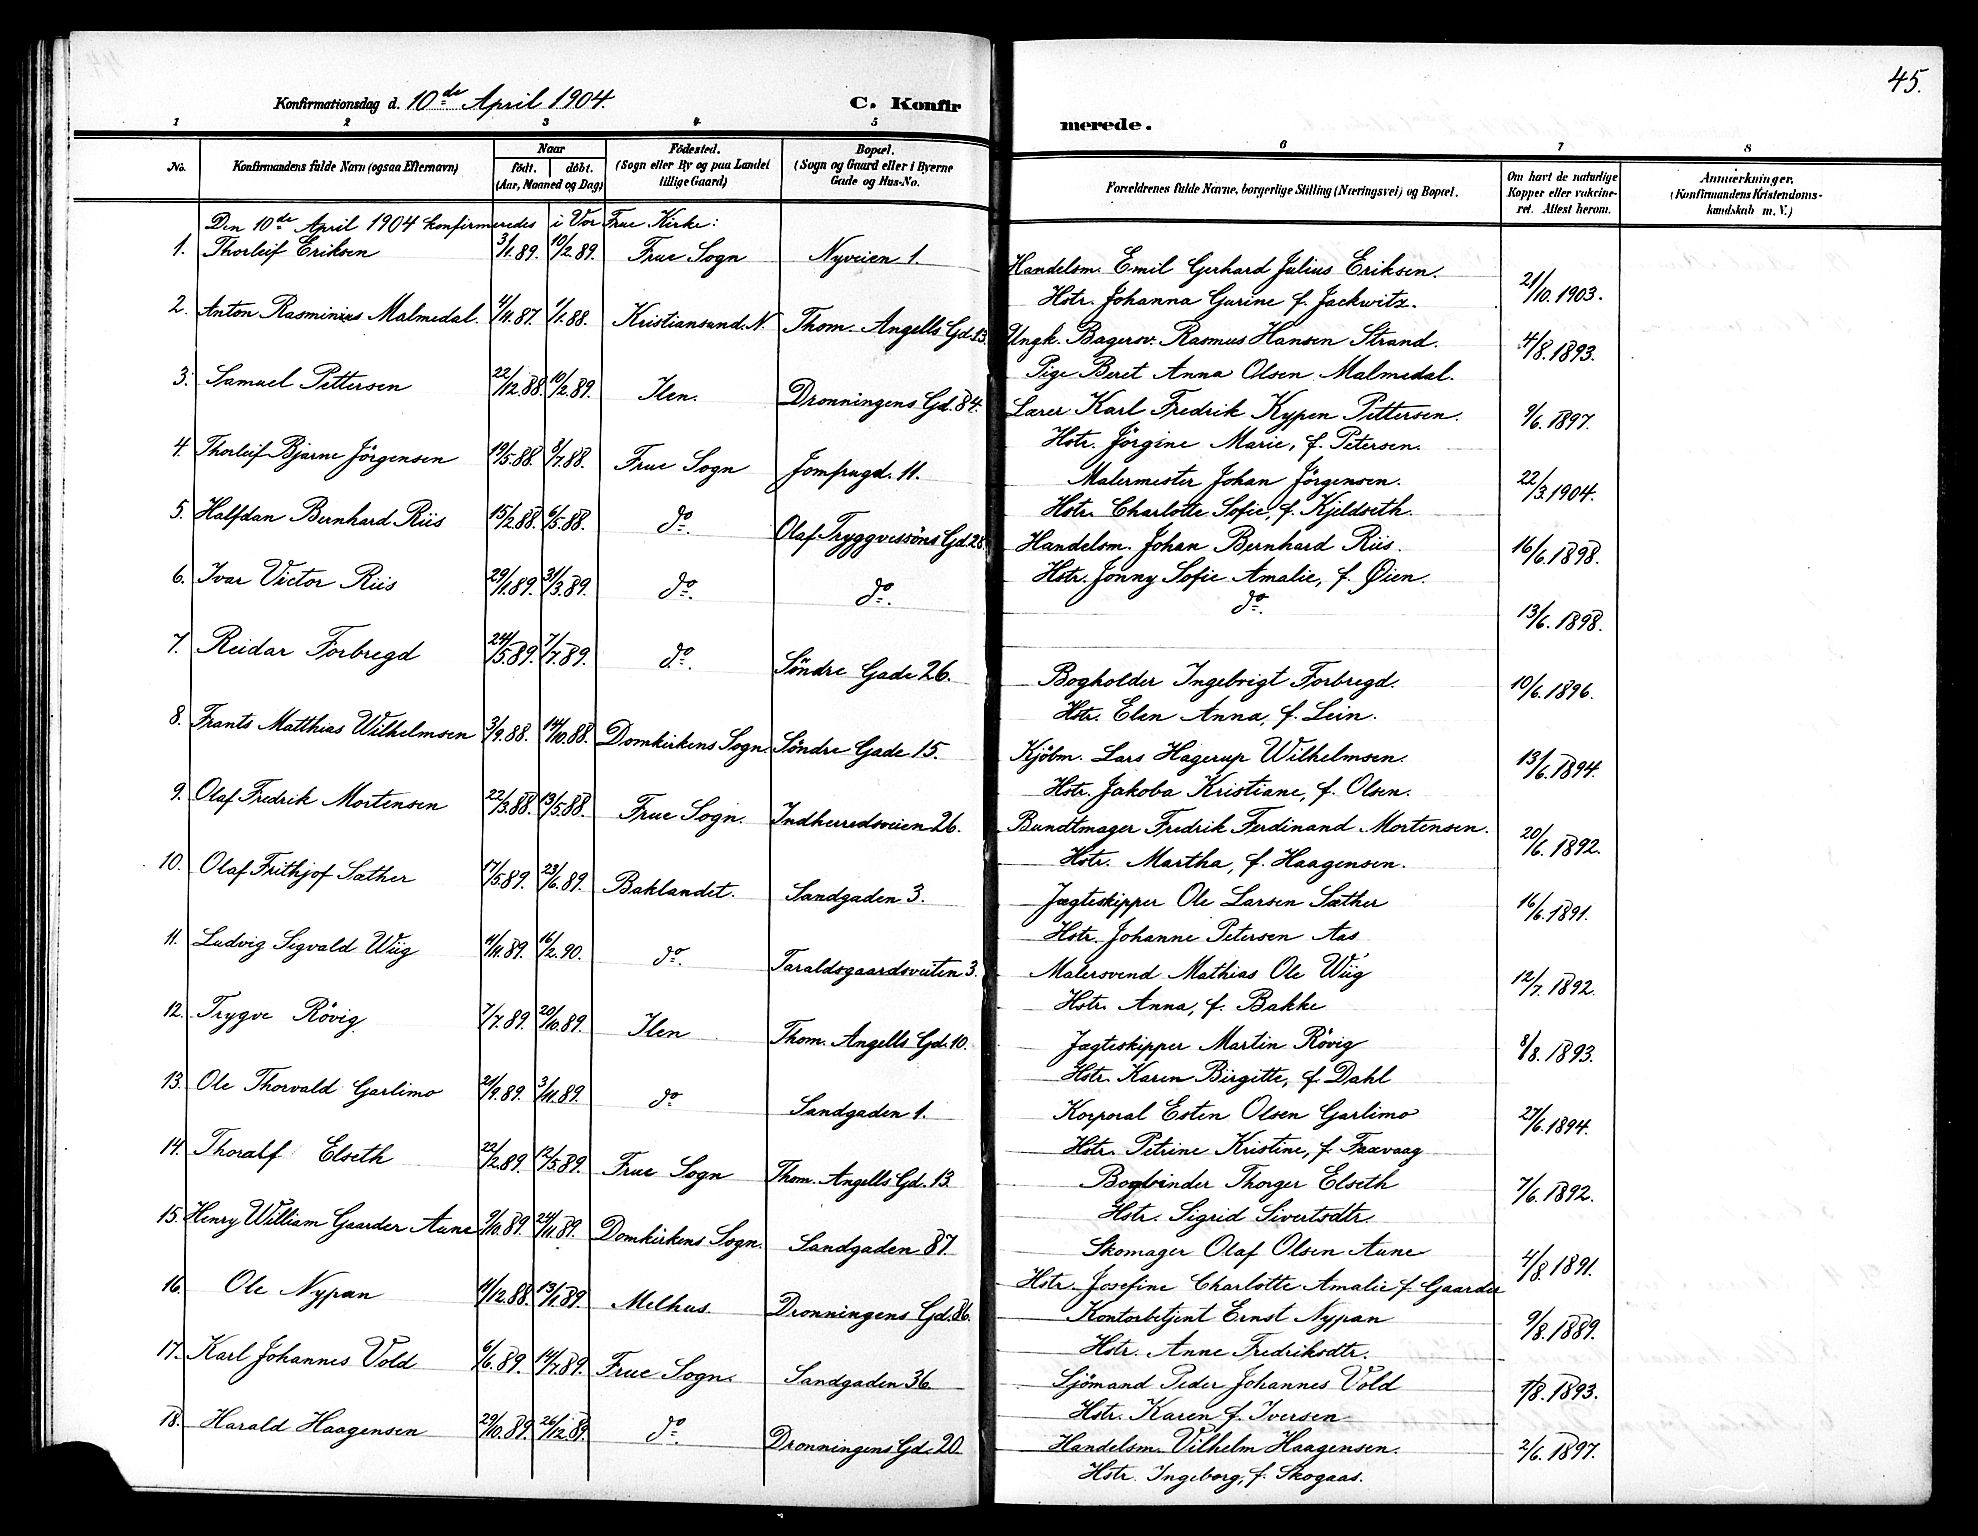 45.
Konfirmationsdag d. 10de April 1904.
C. Konfirmerede.
1 2 3 4 5 6 7 8
No.
Konfirmandens fulde Navn (ogsaa Efternavn)
Naar
födt. döbt.
(Aar, Maaned og Dag)
Födested.
(Sogn eller By og paa Landet
tillige Gaard)
Bopæl.
(Sogn og Gaard eller i Byerne
Gade og Hus-No.
Forældrenes fulde Navne, borgerlige Stilling (Næringsvei) og Bopæl.
Om havt de naturlige
Kopper eller vakcine-
ret. Attest herom.
Anmærkninger.
(Konfirmandens Kristendoms-
kundskab m. V.)
Den 10de April 1904 konfirmeredes i Vor Frue Kirke:
1. Thorleif Eriksen 3/1.89. 10/2.89. Frue Sogn Nyveien 1. Handelsm. Emil Gerhard Julius Eriksen. 21/10.1903.
Hstr. Johanna Gurine f. Jackwitz.
2. Anton Rasminius Malmedal. 4/11.87. 1/1.88. Kristiansund.N. Thom. Angells Gd.13. Ungk. Bagersv. Rasmus Hansen Strand. 4/8.1893.
Pige Beret Anna Olsen Malmedal.
3. Samuel Pettersen 22/12.88. 10/2.89. Ilen. Dronningens Gd.84. Lærer Karl Fredrik Kypen Pettersen. 9/6.1897.
Hstr. Jörgine Marie, f. Petersen.
4. Thorleif Bjarne Jörgensen 19/5.88. 8/7.88. Frue Sogn Jomfrugd. 11. Malermester Johan Jörgensen. 22/3.1904.
Hstr. Charlotte Sofie, f. Kjeldseth.
5. Halfdan Bernhard Riis 15/2.88. 6/5.88. do. Olaf Tryggvessöns Gd.28. Handelsm. Johan Bernhard Riis. 16/6.1898.
Hstr. Jonny Sofie Amalie, f. Øien.
6. Ivar Victor Riis 29/1.89. 31/3.89. do. do. do. 13/6.1898.
7. Reidar Forbregd 24/5.89. 7/7.89. do. Söndre Gade 26. Bogholder Ingebrigt Forbregd. 10/6.1896.
Hstr. Elen Anna, f. Lein.
8. Frants Matthias Wilhelmsen 3/9.88. 14/10.88. Domkirkens Sogn. Söndre Gade 15. Kjöbm. Lars Hagerup Wilhelmsen. 13/6.1894.
Hstr. Jakoba Kristiane, f. Olsen.
9. Olaf Fredrik Mortensen 22/3.88. 13/5.88. Frue Sogn. Indherredsveien 26. Bundtmager Fredrik Ferdinand Mortensen. 20/6.1892.
Hstr. Martha, f. Haagensen.
10. Olaf Frithjof Sæther 17/5.89. 23/6.89. Baklandet. Sandgaden 3. Jægteskipper Ole Larsen Sæther 16/6.1891.
Hstr. Johanne Petersen Aas
11. Ludvig Sigvald Wiig 11/11.89. 16/2.90. do. Taraldsgaardsveiten 3. Malersvend Mathias Ole Wiig 12/7.1892.
Hstr. Anna, f. Bakke
12. Trygve Rövig 7/7.89. 20/10.89. Ilen Thom. Angells Gd.10. Jægteskipper Martin Rövig 8/8.1893.
Hstr. Karen Birgitte, f. Dahl
13. Ole Thorvald Garlimo 21/9.89. 3/11.89. do Sandgaden 1. Korporal Esten Olsen Garlimo 27/6.1894.
Hstr. Petrine Kristine, f. Faxvaag
14. Thoralf Elseth 22/2.89. 12/5.89. Frue Sogn Thom. Angells Gd. 13. Bogbinder Thorger Elseth 7/6.1892.
Hstr. Sigrid Sivertsdtr.
15. Henry William Gaarder Aune 9/10.89. 24/11.89. Domkirkens Sogn. Sandgaden 87. Skomager Olaf Olsen Aune 4/8.1891.
Hstr. Josefine Charlotte Amalie f. Gaarder
16. Ole Nypan 11/12.88. 13/1.89. Melhus. Dronningens Gd.86. Kontorbetjent Ernst Nypan 9/8.1889.
Hstr. Anne Fredriksdtr.
17. Karl Johannes Vold 6/6.89. 14/7.89. Frue Sogn. Sandgaden 36. Sjömand Peder Johannes Vold 1/8.1893.
Hstr. Karen f. Iversen
18. Harald Haagensen 29/10.89. 26/12.89. do. Dronningens Gd. 20. Handelsm. Vilhelm Haagensen. 2/6.1897.
Hstr. Ingeborg, f. Skogaas.